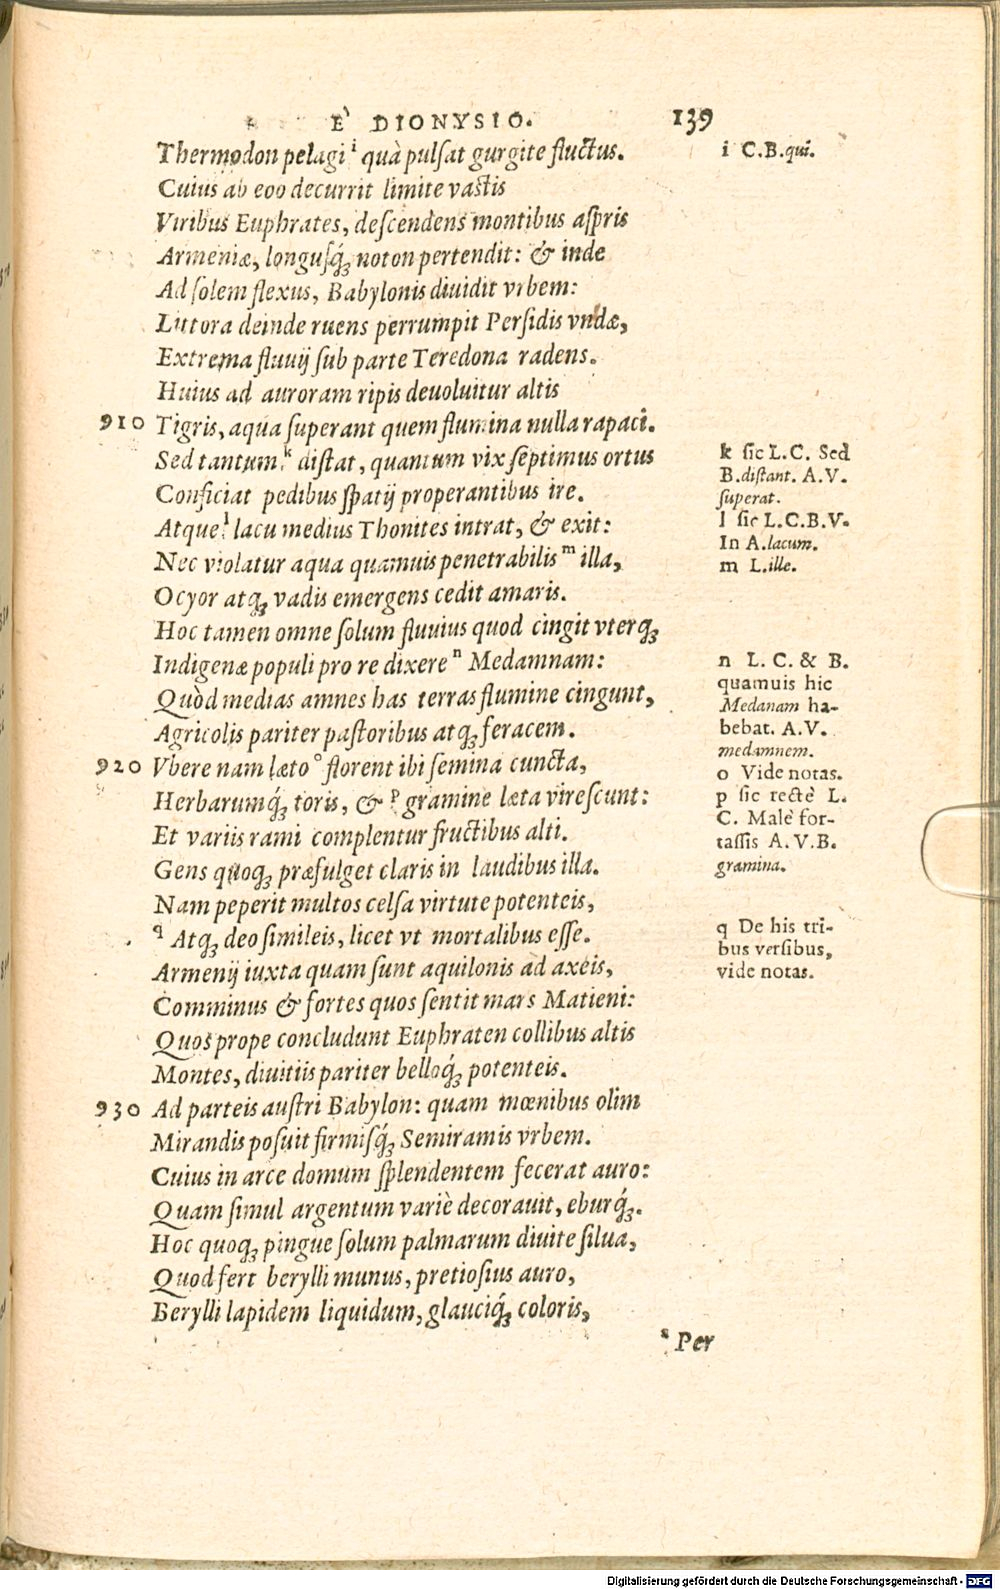 E' DIONYSIO. 139
Thermodon pelagi i quà pulſat gurgite fluctus.
Cuius ab eoo decurrit limite vastis
Viribus Euphrates, deſcendens montibus aſpris
Armeniæ, longuſq́ꝫ noton pertendit: & inde
Ad ſolem flexus, Babylonis diuidit vrbem:
Littora deinde ruens perrumpit Perſidis vndæ,
Extrema fluuij ſub parte Teredona radens.
Huius ad auroram ripis deuoluitur altis
910 Tigris, aqua ſuperant quem flumina nulla rapaci.
Sed tantum k diſtat, quantum vix ſeptimus ortus
Conficiat pedibus ſpatij properantibus ire.
Atque l lacu medius Thonites intrat, & exit:
Nec violatur aqua quamuis penetrabilis m illa,
Ocyor atqꝫ vadis emergens cedit amaris.
Hoc tamen omne ſolum fluuius quod cingit vterqꝫ
Indigenæ populi pro re dixere n Medamnam:
Quòd medias amnes has terras flumine cingunt,
Agricolis pariter paſtoribus atqꝫ feracem.
920 Vbere nam læto o florent ibi ſemina cuncta,
Herbarumq́ꝫ toris, & p gramine læta vireſcunt:
Et variis rami complentur fructibus alti.
Gens quoqꝫ præfulget claris in laudibus illa.
Nam peperit multos celſa virtute potenteis,
q Atqꝫ deo ſimileis, licet vt mortalibus eſſe.
Armenij iuxta quam ſunt aquilonis ad axeis,
Comminus & fortes quos ſentit mars Matieni:
Quos prope concludunt Euphraten collibus altis
Montes, diuitiis pariter belloq́ꝫ potenteis.
930 Ad parteis auſtri Babylon: quam mœnibus olim
Mirandis poſuit firmiſq́ꝫ Semiramis vrbem.
Cuius in arce domum ſplendentem fecerat auro:
Quam ſimul argentum variè decorauit, eburq́ꝫ.
Hoc quoqꝫ pingue ſolum palmarum diuite ſilua,
Quod fert berylli munus, pretioſius auro,
Berylli lapidem liquidum, glauciq́ꝫ coloris,
Per
i C.B.qui.
k ſic L.C. Sed
B.diſtant. A.V.
ſuperat.
l ſic L.C.B.V.
In A.lacum.
m L.ille.
n L. C. & B.
quamuis hic
Medanam ha-
bebat. A.V.
medamnem.
o Vide notas.
p ſic rectè L.
C. Malè for-
taſſis A.V.B.
gramina.
q De his tri-
bus verſibus,
vide notas.
Digitalisierung gefördert durch die Deutsche Forschungsgemeinschaft - DFG